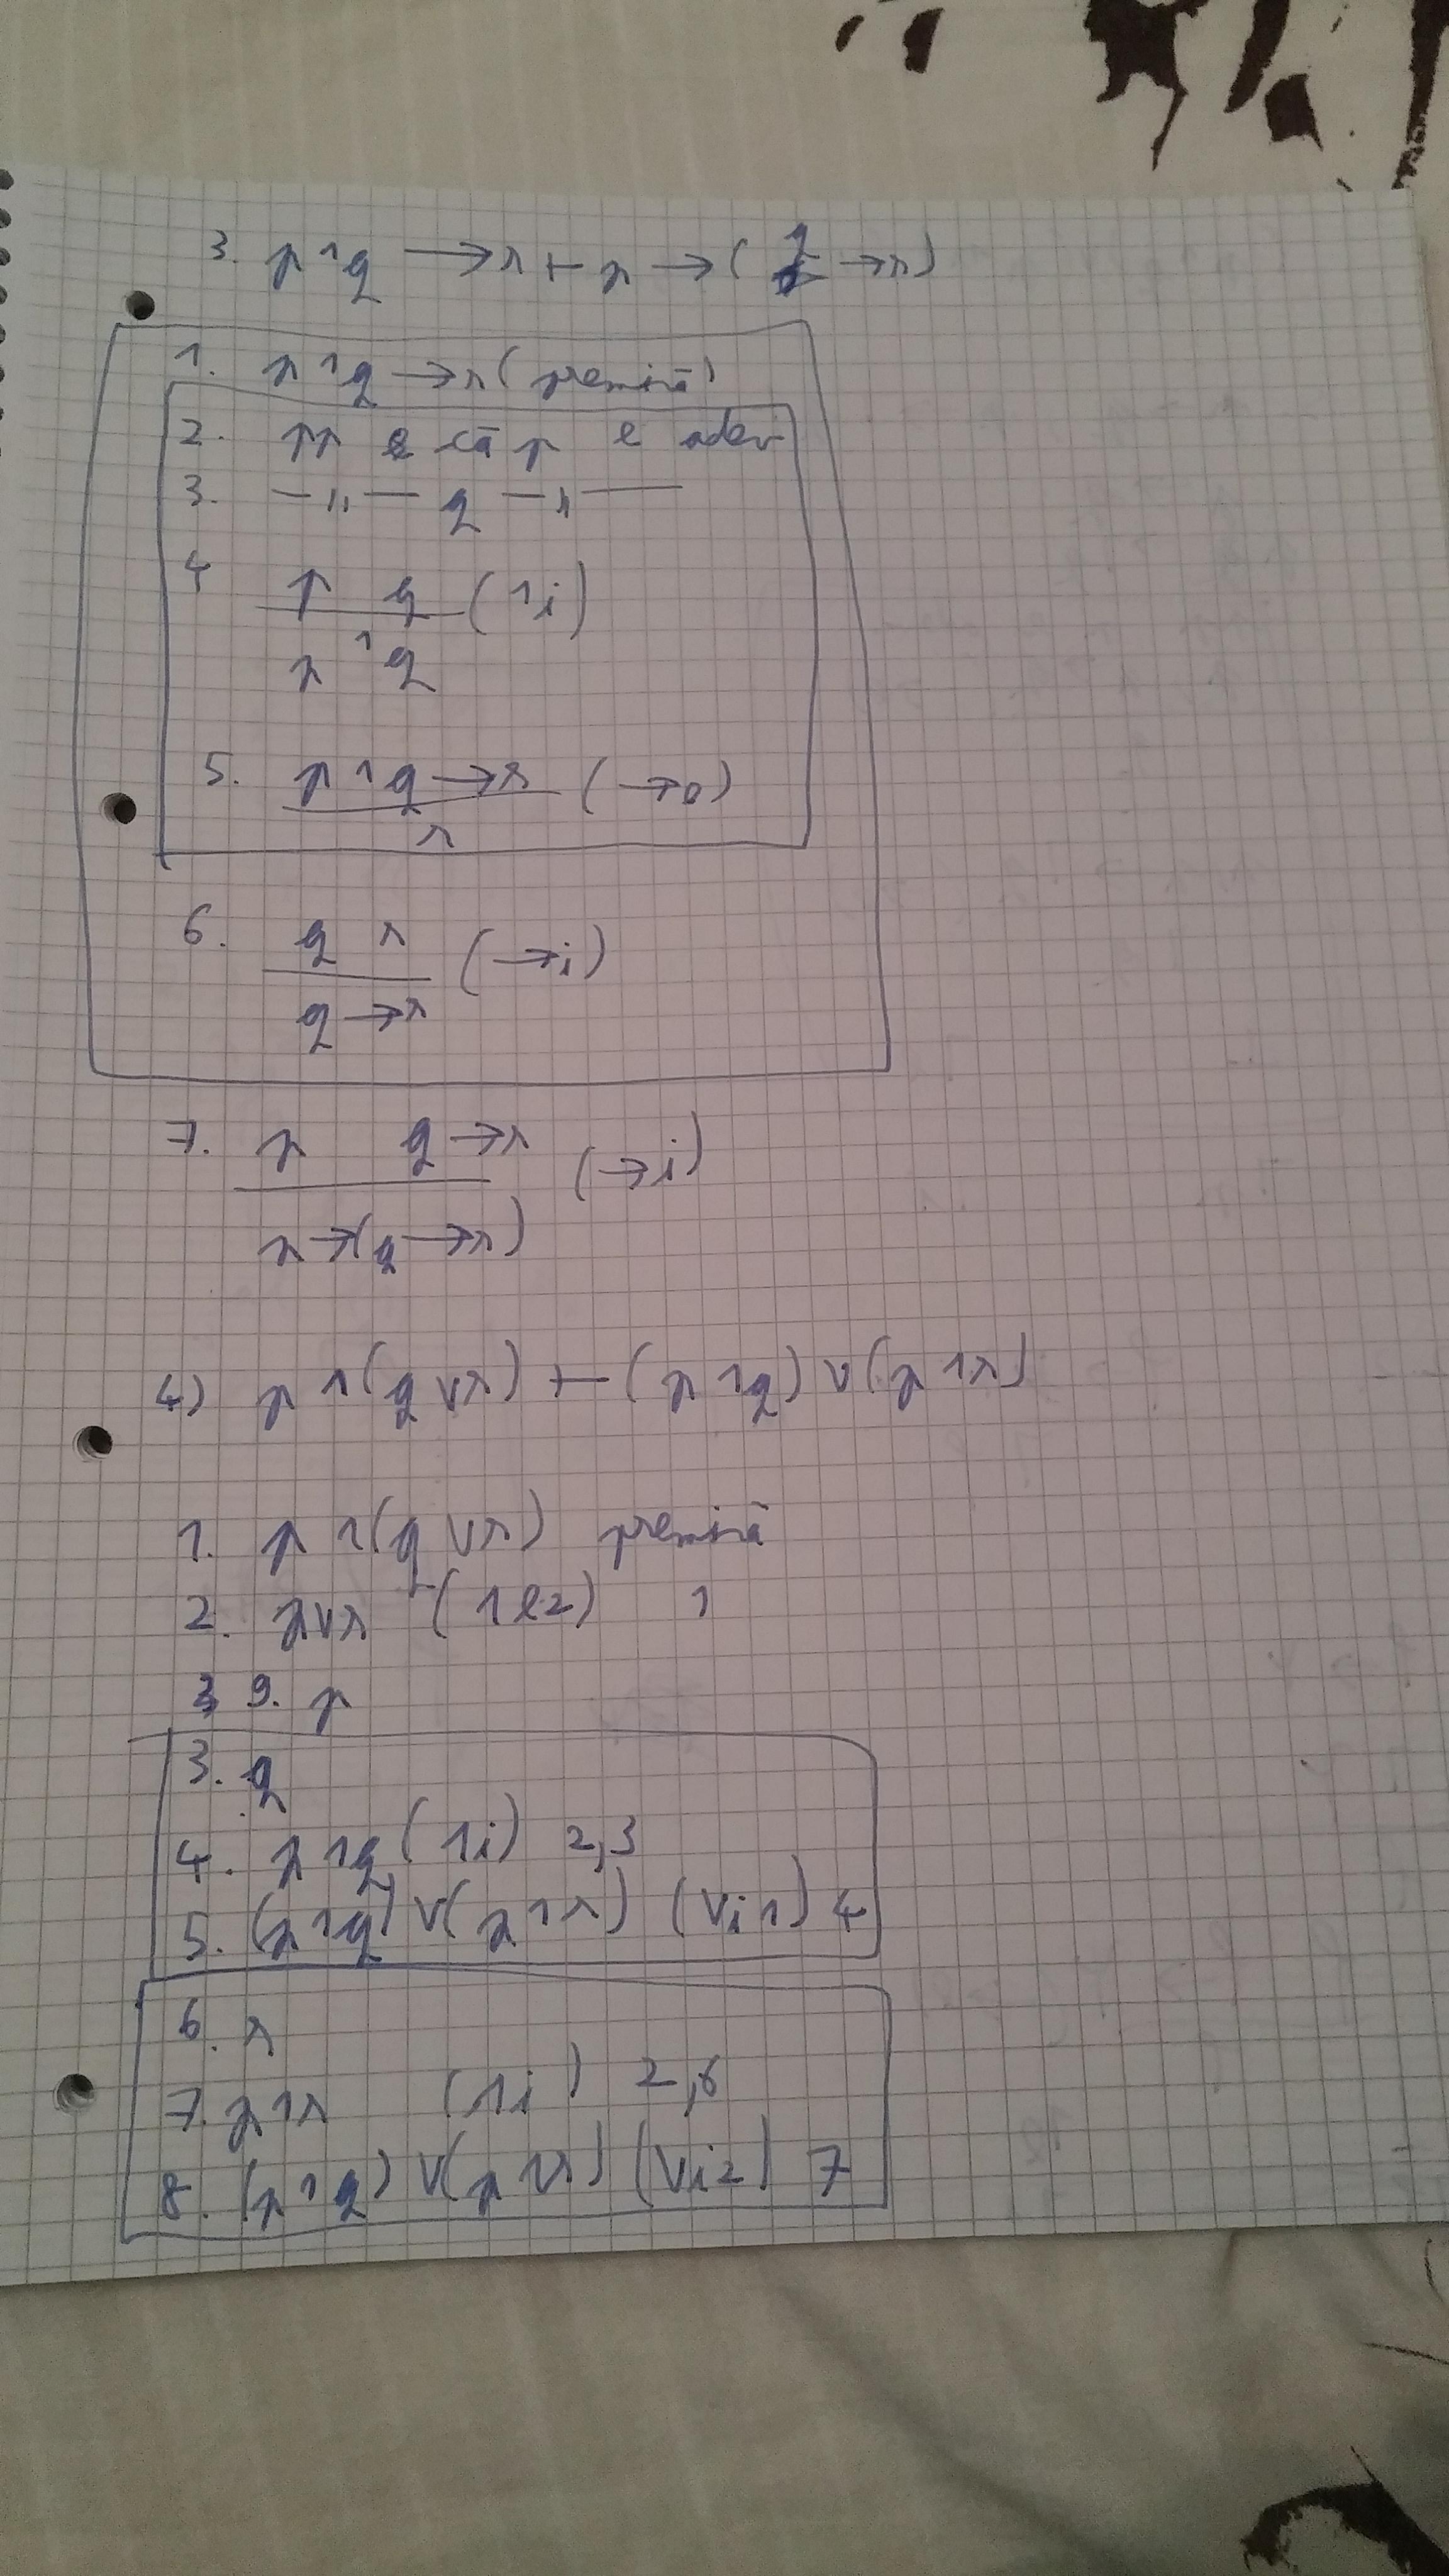 3. p ∧ q → r ⊢ p → (q → r)
1. p ∧ q → r (premisă)
2. pp că p e adev
3. —"— q —"—
4 p q (∧i)
p ∧ q
5. p ∧ q → r (→e)
r
6. q r (→i)
q → r
7. p q → r (→i)
p → (q → r)
4) p ∧ (q ∨ r) ⊢ (p ∧ q) ∨ (p ∧ r)
1. p ∧ (q ∨ r) premisă
2. p ∨ r (∧e2) 1
9. p
3. q
4. p ∧ q (∧i) 2,3
5. (p ∧ q) ∨ (p ∧ r) (∨i1) 4
6. r
7. p ∧ r (∧i) 2,6
8. (p ∧ q) ∨ (p ∨ r) (∨i2) 7